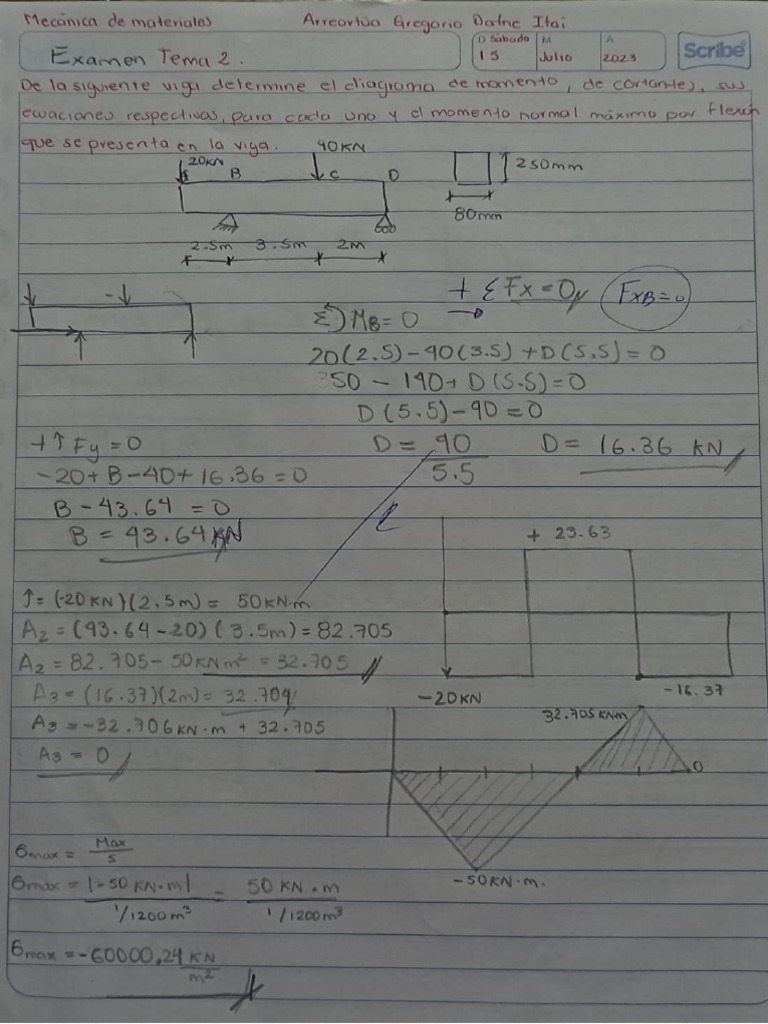 Mecánica de materiales Arreortúa Gregorio Dafne Itai
D Sábado M A
Examen Tema 2. 15 Julio 2023 Scribe
De la siguiente viga determine el diagrama de momento, de cortantes, sus
ecuaciones respectivas, para cada uno y el momento normal máximo por flexión
que se presenta en la viga.
20KN 40KN
B C D
250mm
80mm
2.5m 3.5m 2m
+ Σ Fx = 0 FxB=0
Σ MB = 0
20(2.5)-40(3.5)+D(5.5)=0
50 - 140 + D(5.5)=0
D(5.5)-90=0
+↑ Fy = 0 D = 90 D = 16.36 KN
5.5
-20+B-40+16.36=0
B-43.64 = 0
B = 43.64 KN
+ 23.63
↑= (-20KN)(2.5m)= 50KN·m
A2=(43.64-20)(3.5m)=82.705
A2=82.705-50KNm²=32.705
A3=(16.37)(2m)=32.704
-20KN -16.37
A3=-32.706KN·m + 32.705
32.705KNm
A3 = 0
0
-50KN·m.
σmax = Max
S
σmax = |-50KN·m| = 50 KN·m
1/1200m³ 1/1200m³
σmax = -60000.24 KN
m²